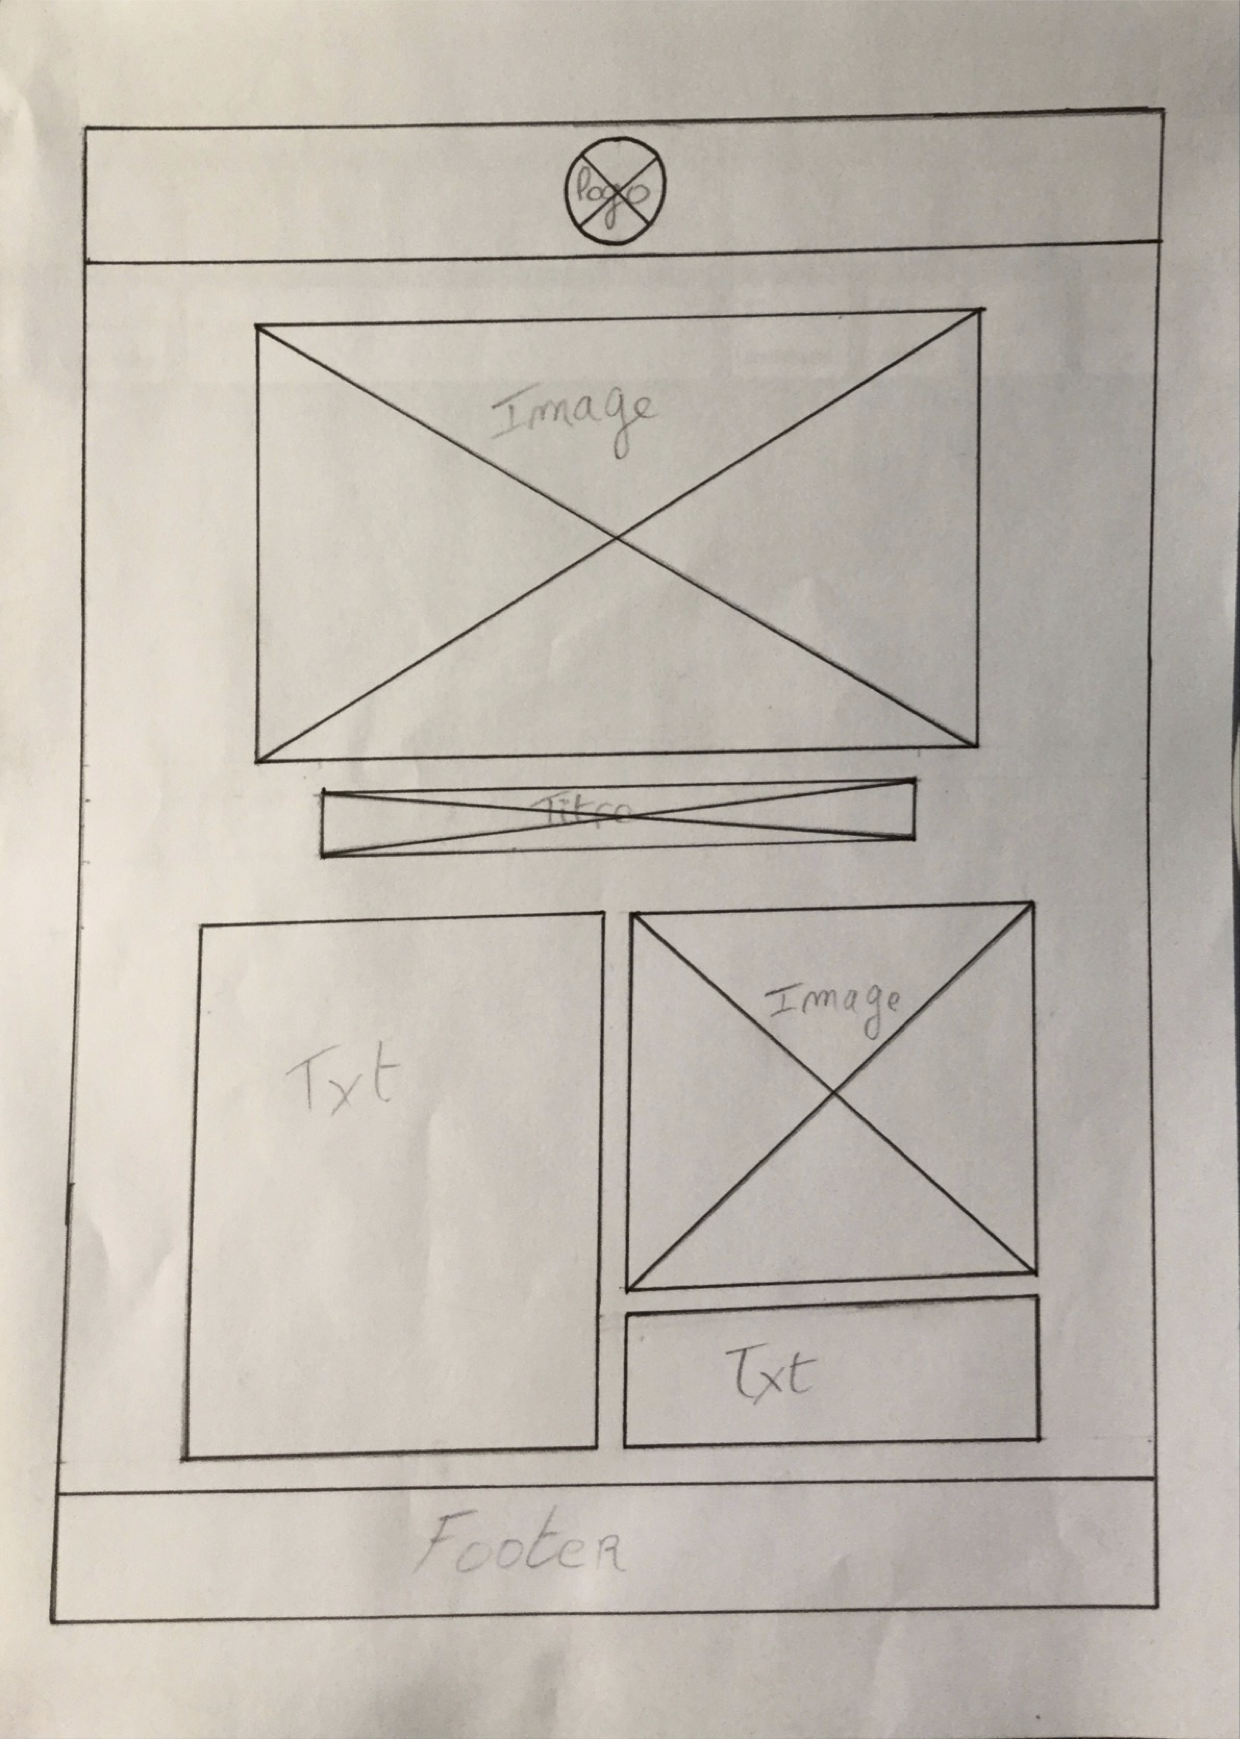 logo
Image
Titre
Txt
Image
Txt
Footer